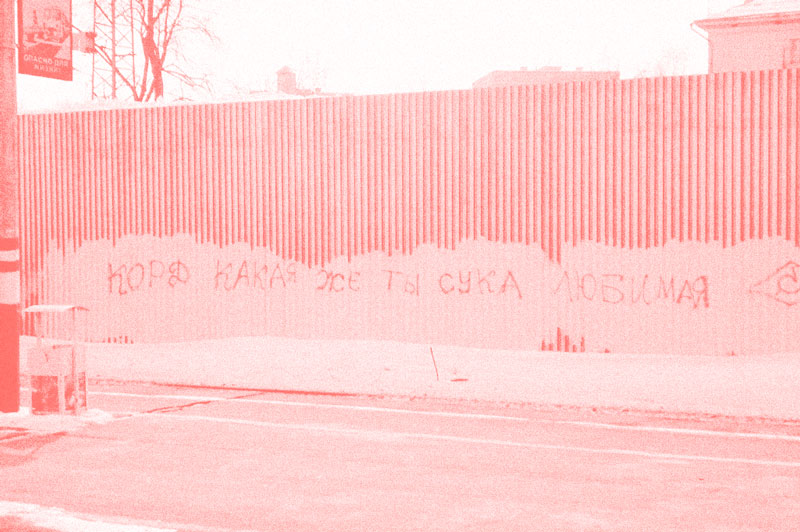 ОПАСНО ДЛЯ
ЖИЗНИ!
КОРД КАКАЯ ЖЕ ТЫ СУКА ЛЮБИМАЯ